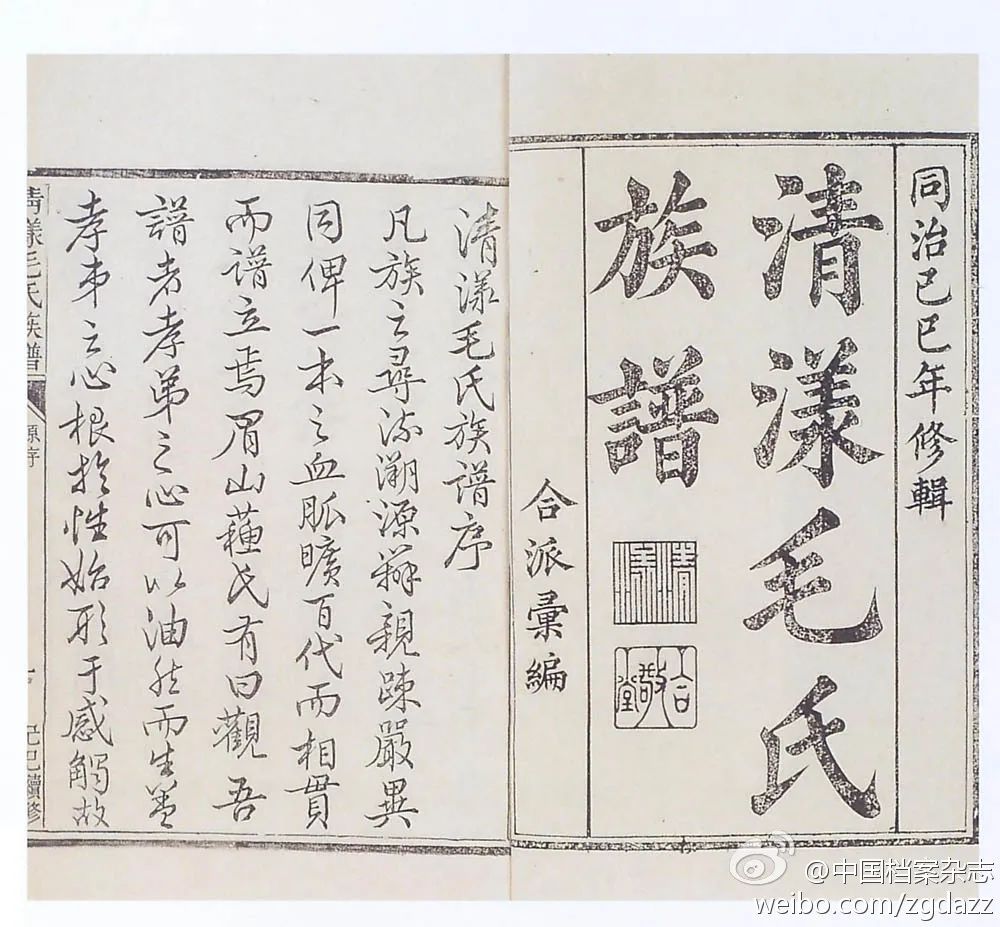 同治己巳年修輯
清漾毛氏
族譜
合派彙編
清漾毛氏族譜序
凡族之尋流溯源辯親疎嚴異
同俾一本之血脈曠百代而相貫
而譜立焉眉山蘓氏有曰觀吾
譜者孝弟之心可以油然而生盖
孝弟之心根於性始形于感觸故
清漾毛氏族譜
源序
己巳續修
@中国档案杂志
weibo.com/zgdazz